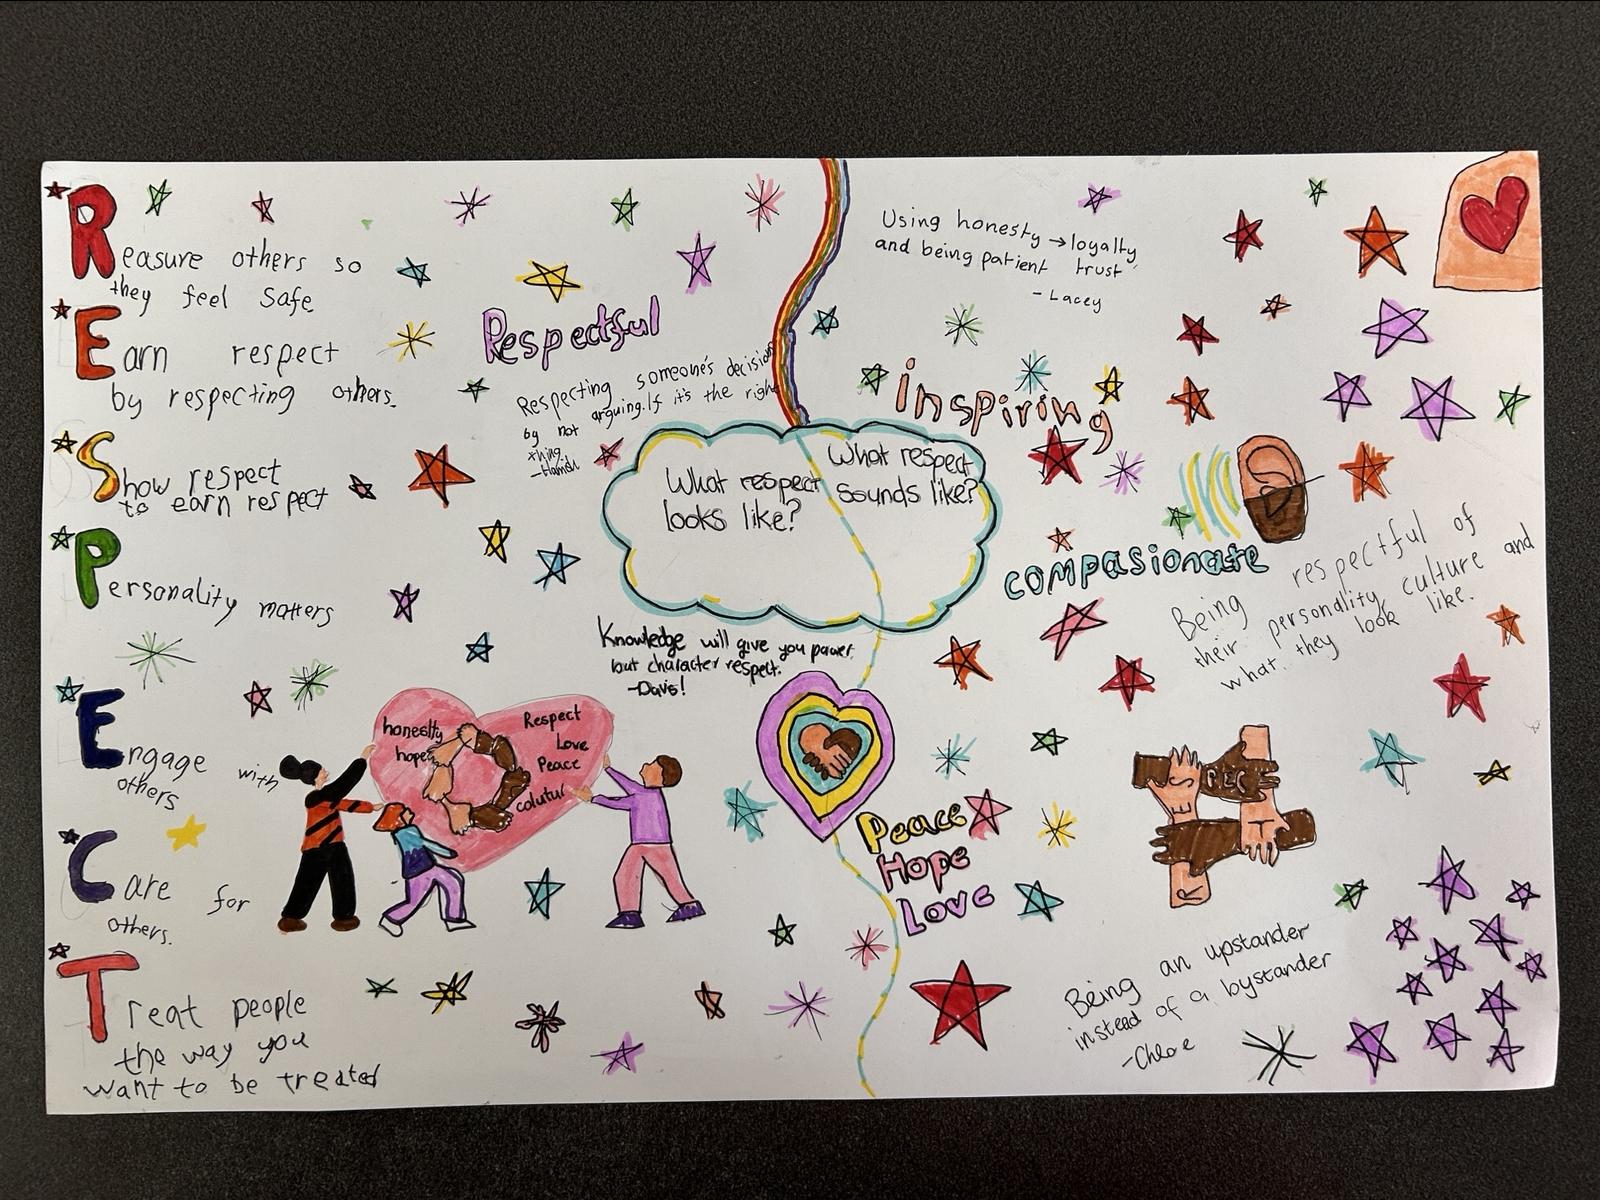 Reasure others so
they feel Safe
Earn respect
by respecting others.
Show respect
to earn respect
Personality matters
Engage with
others
Care for
others.
Treat people
the way you
want to be treated
Respectful
Respecting someone's decision
by not arguing. If it's the right
thing
-Hamish
What respect
looks like?
What respect
sounds like?
Knowledge will give you power,
but character respect.
-Davis!
honestlty
hope
Respect
Love
Peace
colutur
Using honesty → loyalty
and being patient trust
- Lacey
inspiring
compasionate
Being respectful of
their personality, culture and
what they look like.
Peace
Hope
Love
RESPECT
Being an upstander
instead of a bystander
-Chloe